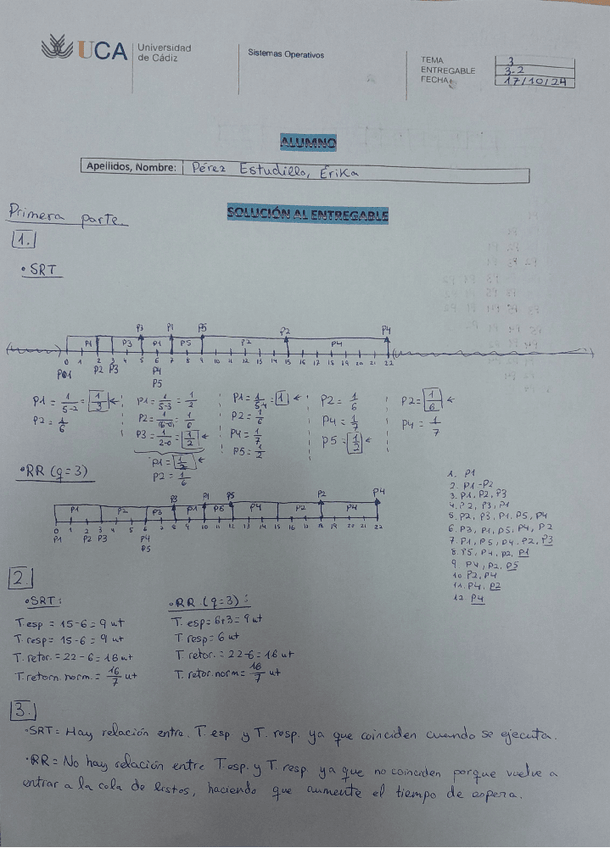 UCA Universidad
de Cádiz
Sistemas Operativos
TEMA 3
ENTREGABLE 3.2
FECHA 17/10/24
ALUMNO
Apellidos, Nombre: Pérez Estudillo, Erika
SOLUCIÓN AL ENTREGABLE
Primera parte
1.
• SRT
P3 P1 P5 P2 P4
P1 P3 P1 P5 P2 P4
0 1 2 3 4 5 6 7 8 9 10 11 12 13 14 15 16 17 18 19 20 21 22
P1 P2 P3 P4
P5
P1 = 1/5-2 = 1/3 ←
P2 = 1/6
P1 = 1/5-3 = 1/2
P3 = 1/2-0 = 1/2 ←
P2 = 1/6
P4 = 1/7
P5 = 1/2
P2 = 1/6
P4 = 1/7
P5 = 1/2 ←
P2 = 1/6 ←
P4 = 1/7
• RR (q=3)
P3 P1 P5 P2 P4
P1 P2 P3 P1 P5 P4 P2 P4
P1 P2 P3 P4
P5
1. P1
2. P1-P2
3. P1, P2, P3
4. P2, P3, P1
5. P2, P3, P1, P5, P4
6. P3, P1, P5, P4, P2
7. P1, P5, P4, P2, P3
8. P5, P4, P2, P1
9. P4, P2, P5
10. P2, P4
11. P4, P2
12. P4
2.
• SRT:
T. esp = 15-6 = 9 ut
T. resp = 15-6 = 9 ut
T. retor. = 22-6 = 16 ut
T. retorn. norm. = 16/7 ut
• RR (q=3):
T. esp = 6+3 = 9 ut
T resp = 6 ut
T retor. = 22-6 = 16 ut
T. retor. norm = 16/7 ut
3.
• SRT = Hay relación entre T. esp y T. resp. ya que coinciden cuando se ejecuta.
• RR = No hay relación entre T. esp. y T. resp ya que no coinciden porque vuelve a
entrar a la cola de listos, haciendo que aumente el tiempo de espera.